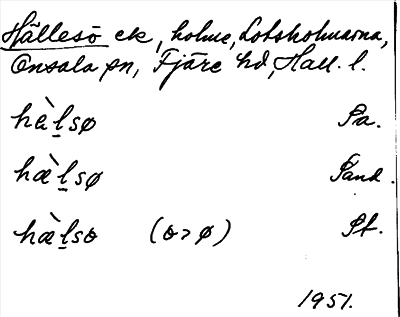 Hällesö ek, holme, Lotsholmarna,
Onsala sn, Fjäre hd, Hall. l.
hæ̀l̠sø Pa.
hæ̀l̠sø Sand.
hæ̀l̠sɵ (ɵ > ø) Pf.
1951.